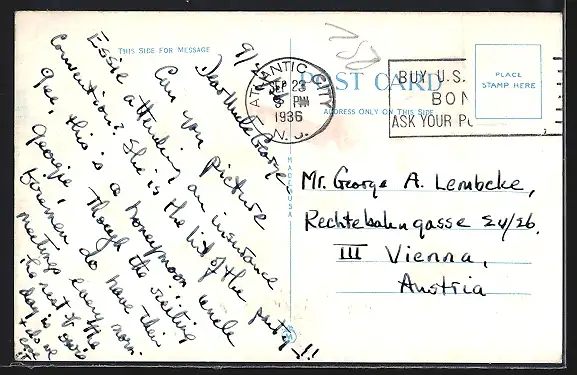 THIS SIDE FOR MESSAGE
9/23/36
Dear Uncle George
Can you picture
Essie attending an insurance
convention? She is the hit of the party-!!
Gee, this is a honeymoon uncle
Georgie, though the visiting
firemen do have their
meetings every morn.
the rest of the
day is ours
& do we
POST CARD
ADDRESS ONLY ON THIS SIDE
MADE IN USA
ATLANTIC CITY
SEP 23
PM
1936
N. J.
BUY U.S.
BON
ASK YOUR PO
PLACE
STAMP HERE
Mr. George A. Lembcke,
Rechtebahngasse 24/26.
III Vienna,
Austria